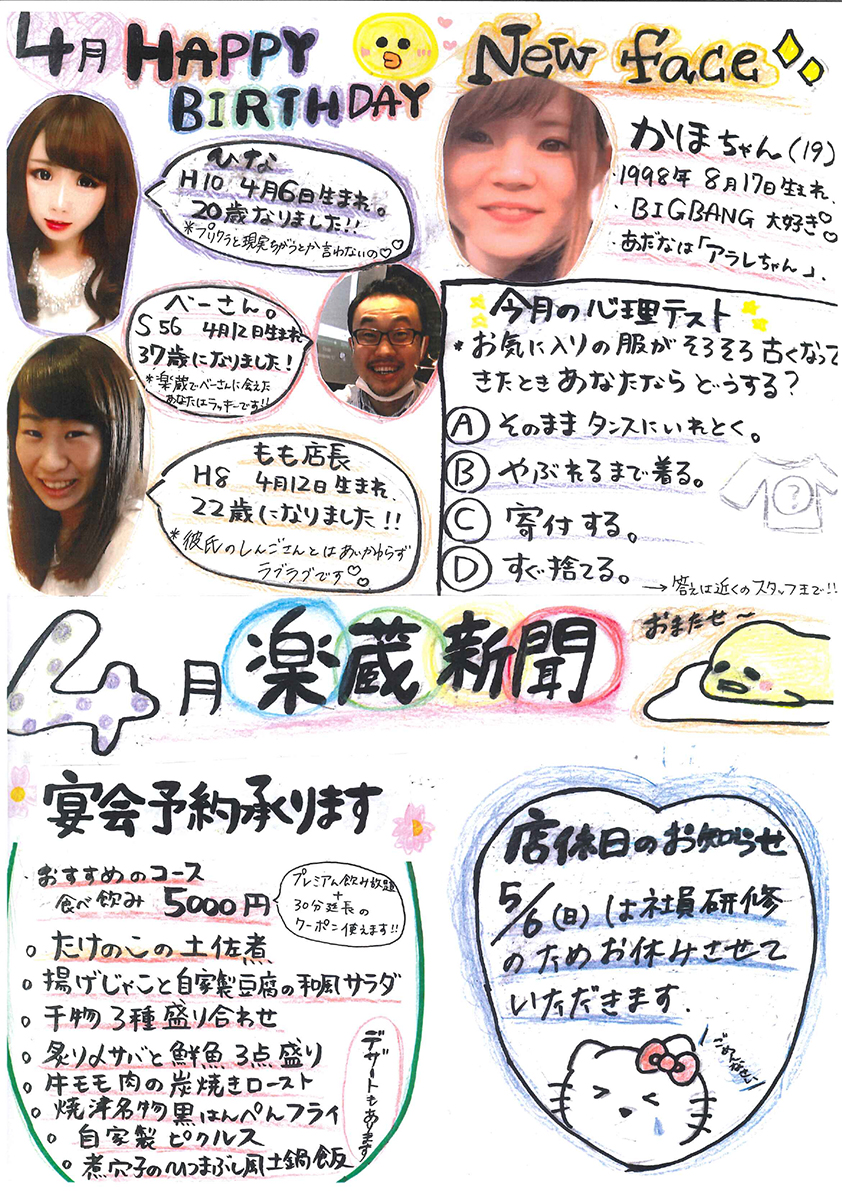 4月 HAPPY
BIRTHDAY
ひな
H10 4月6日生まれ。
20歳なりました!!
*プリクラと現実ちがうとか言わないの♡♡
べーさん。
S56 4月12日生まれ
37歳になりました!
*楽蔵でべーさんに会えた
あなたはラッキーです!!
もも店長
H8 4月12日生まれ、
22歳になりました!!
*彼氏のしんごさんとはあいかわらず
ラブラブです♡♡
New face
かほちゃん(19)
・1998年8月17日生まれ、
・BIGBANG 大好き♡
・あだなは「アラレちゃん」、
今月の心理テスト
*お気に入りの服がそろそろ古くなって
きたときあなたならどうする?
Ⓐ そのままタンスにいれとく。
Ⓑ やぶれるまで着る。
Ⓒ 寄付する。
Ⓓ すぐ捨てる。
?
→答えは近くのスタッフまで!!
4月 楽蔵新聞
おまたせ〜
宴会予約承ります
・おすすめのコース
食べ飲み 5000円
プレミアム飲み放題
+
30分延長の
クーポン使えます!!
○ たけのこの土佐煮
○ 揚げじゃこと自家製豆腐の和風サラダ
○ 干物3種盛り合わせ
○ 炙り〆サバと鮮魚3点盛り
○ 牛モモ肉の炭焼きロースト
○ 焼津名物黒はんぺんフライ
○ 自家製ピクルス
○ 煮穴子のひつまぶし風土鍋飯
デザートもあります
店休日のお知らせ
5/6(日)は社員研修
のためお休みさせて
いただきます。
ごめんなさい